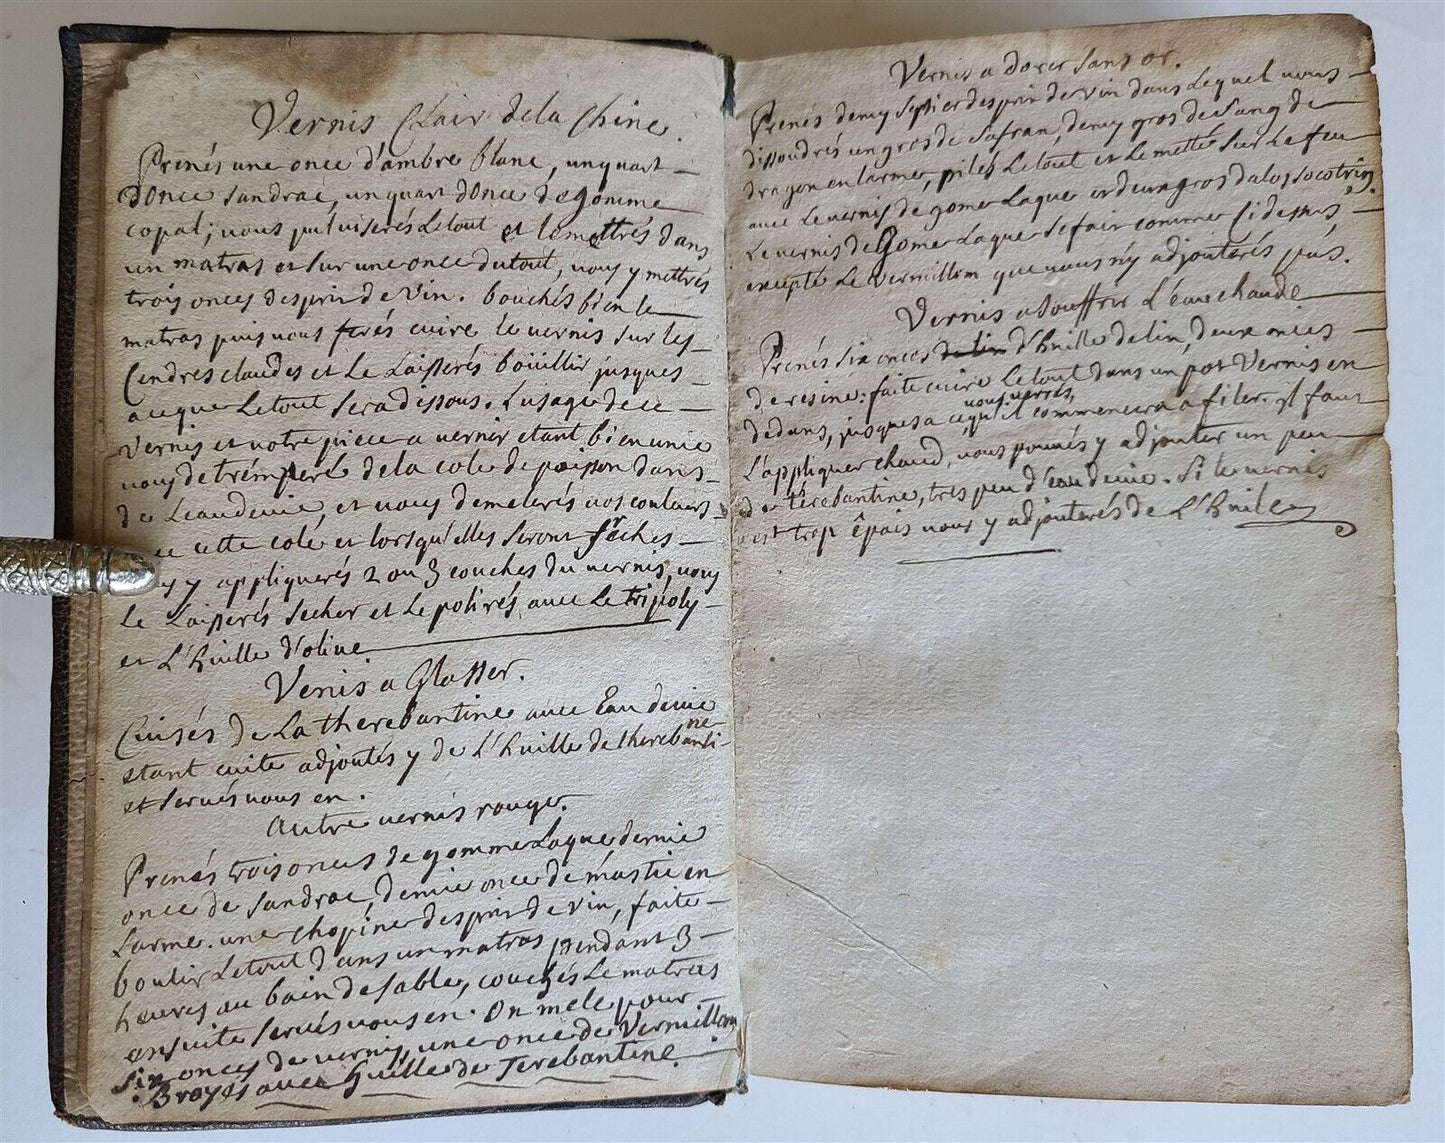 Vernis Clair de la Chine.
Prenés une once d'ambre blanc, un quart
donce sandrac, un quart donce de gomme
copal; vous pulviserés Letout et le mettrés dans
un matras et sur une once dutout, vous y mettrés
trois onces desprit de Vin. bouchés bien le
matras puis vous ferés cuire le vernis sur les
Cendres claudes et Le Laisserés boüillir jusques
aceque Letout sera dissous. Lusage de ce
Vernis et votre piece a vernir etant bien unie
vous detrémperé de la cole de poisson dans
de Leaudevie, et vous demelerés vos couleurs
cette cole et lorsqu'elles seront séches
y appliquerés 2 ou 3 couches du vernis, vous
le Laisserés secher et Le polirés avec Le tripoly
et L'huille d'olive
Venis a Glasser.
Cuisés de La therebantine avec Eau devie
etant cuite adjoutés y de L'huille de therebanti
ne
et servés vous en.
Autre vernis rouge.
Prenés trois onces de gomme Laque demie
once de sandrac, demie once de mastic en
Larme. une chopine desprit de vin, faite
boulir Letout dans un matras pendant 3
heures au bain de sable, couchés Le matras
ensuite servés vous en. On mele pour
six onces de vernis, une once de Vermillon
Broyés avec huille de Terebantine.
Vernis a dorer sans or.
Prenés demy septier desprit de vin dans Lequel vous
dissoudrés un gros de safran, demy gros de sang de
dragon en larme, pilés Letout et Le metté sur Le feu
avec Le vernis de gome Laque et deux gros daloz socotrin.
Le vernis de Gome Laque se fait comme Ci dessus,
excepté Le vermillom que vous n'y adjouterés pas.
Vernis a souffrir L'eau chaude
Prenés six onces de lin d'huille de lin, deux onces
de resine: faite cuire Letout dans un pot Vernis en
vous verrés
dedans, jusques a ce qu'il commencera a filer. il faut
L'appliquer chaud, vous pouvés y adjouter un peu
de térebantine, tres peu d'eau devie. Si le vernis
est trop êpais vous y adjouterés de L'huile